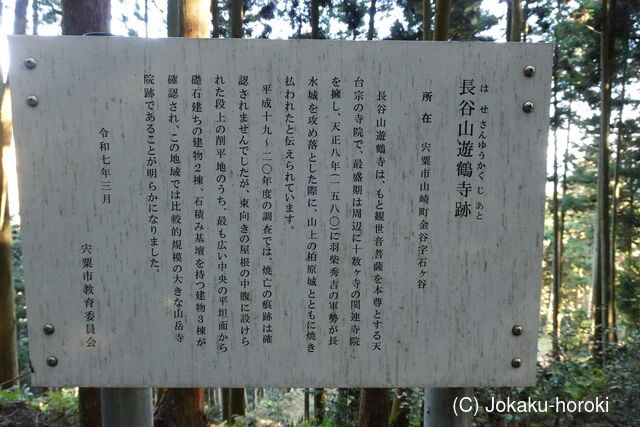 はせさんゆうかくじあと
長谷山遊鶴寺跡
所在　宍粟市山崎町金谷字石ヶ谷
長谷山遊鶴寺は、もと観世音菩薩を本尊とする天
台宗の寺院で、最盛期は周辺に十数ヶ寺の関連寺院
を擁し、天正八年(一五八〇)に羽柴秀吉の軍勢が長
水城を攻め落とした際に、山上の柏原城とともに焼き
払われたと伝えられています。
平成十九～二〇年度の調査では、焼亡の痕跡は確
認されませんでしたが、東向きの屋根の中腹に設けら
れた段上の削平地のうち、最も広い中央の平坦面から
礎石建ちの建物２棟、石積み基壇を持つ建物３棟が
確認され、この地域では比較的規模の大きな山岳寺
院跡であることが明らかになりました。
令和七年三月
宍粟市教育委員会
(C) Jokaku-horoki